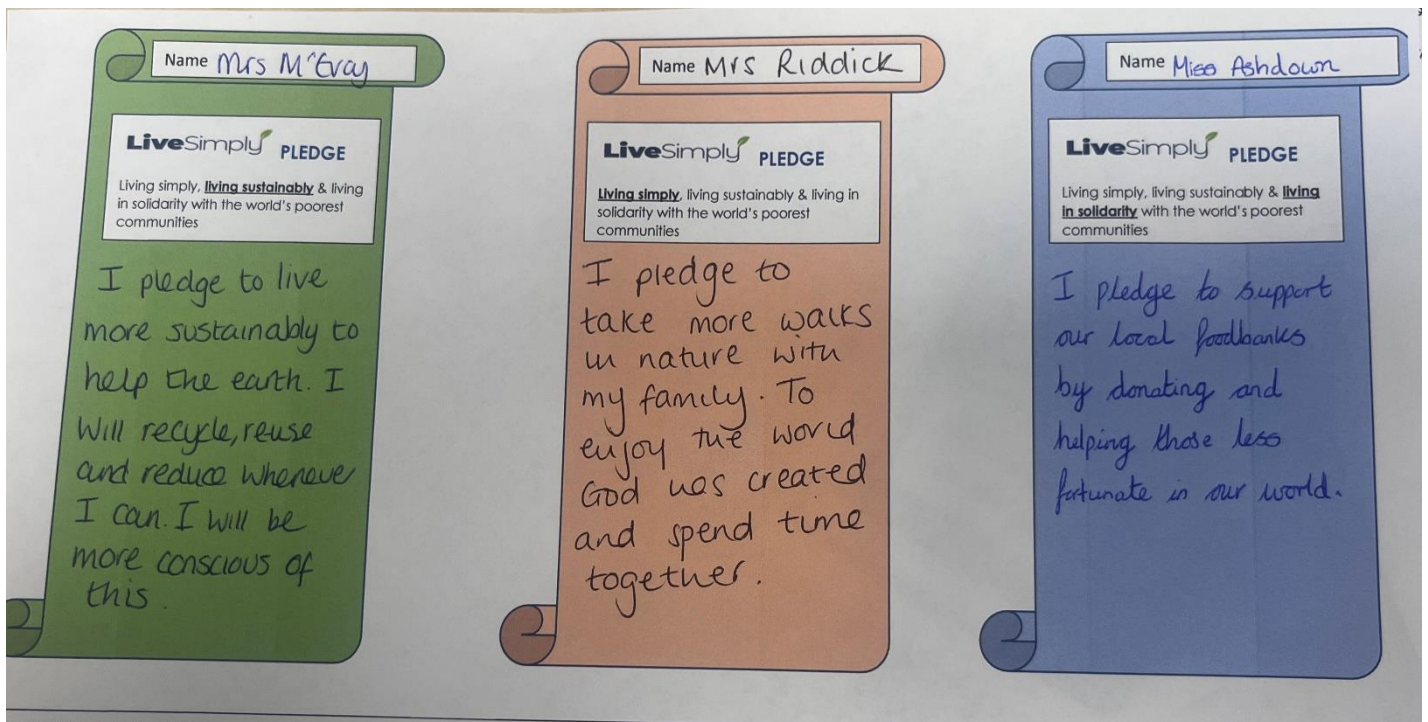 Name Mrs McEvoy
LiveSimply PLEDGE
Living simply, living sustainably & living
in solidarity with the world's poorest
communities
I pledge to live
more sustainably to
help the earth. I
Will recycle, reuse
and reduce whenever
I can. I will be
more conscious of
this.
Name Mrs Riddick
LiveSimply PLEDGE
Living simply, living sustainably & living in
solidarity with the world's poorest
communities
I pledge to
take more walks
in nature with
my family. To
enjoy the world
God has created
and spend time
together.
Name Miss Ashdown
LiveSimply PLEDGE
Living simply, living sustainably & living
in solidarity with the world's poorest
communities
I pledge to support
our local foodbanks
by donating and
helping those less
fortunate in our world.